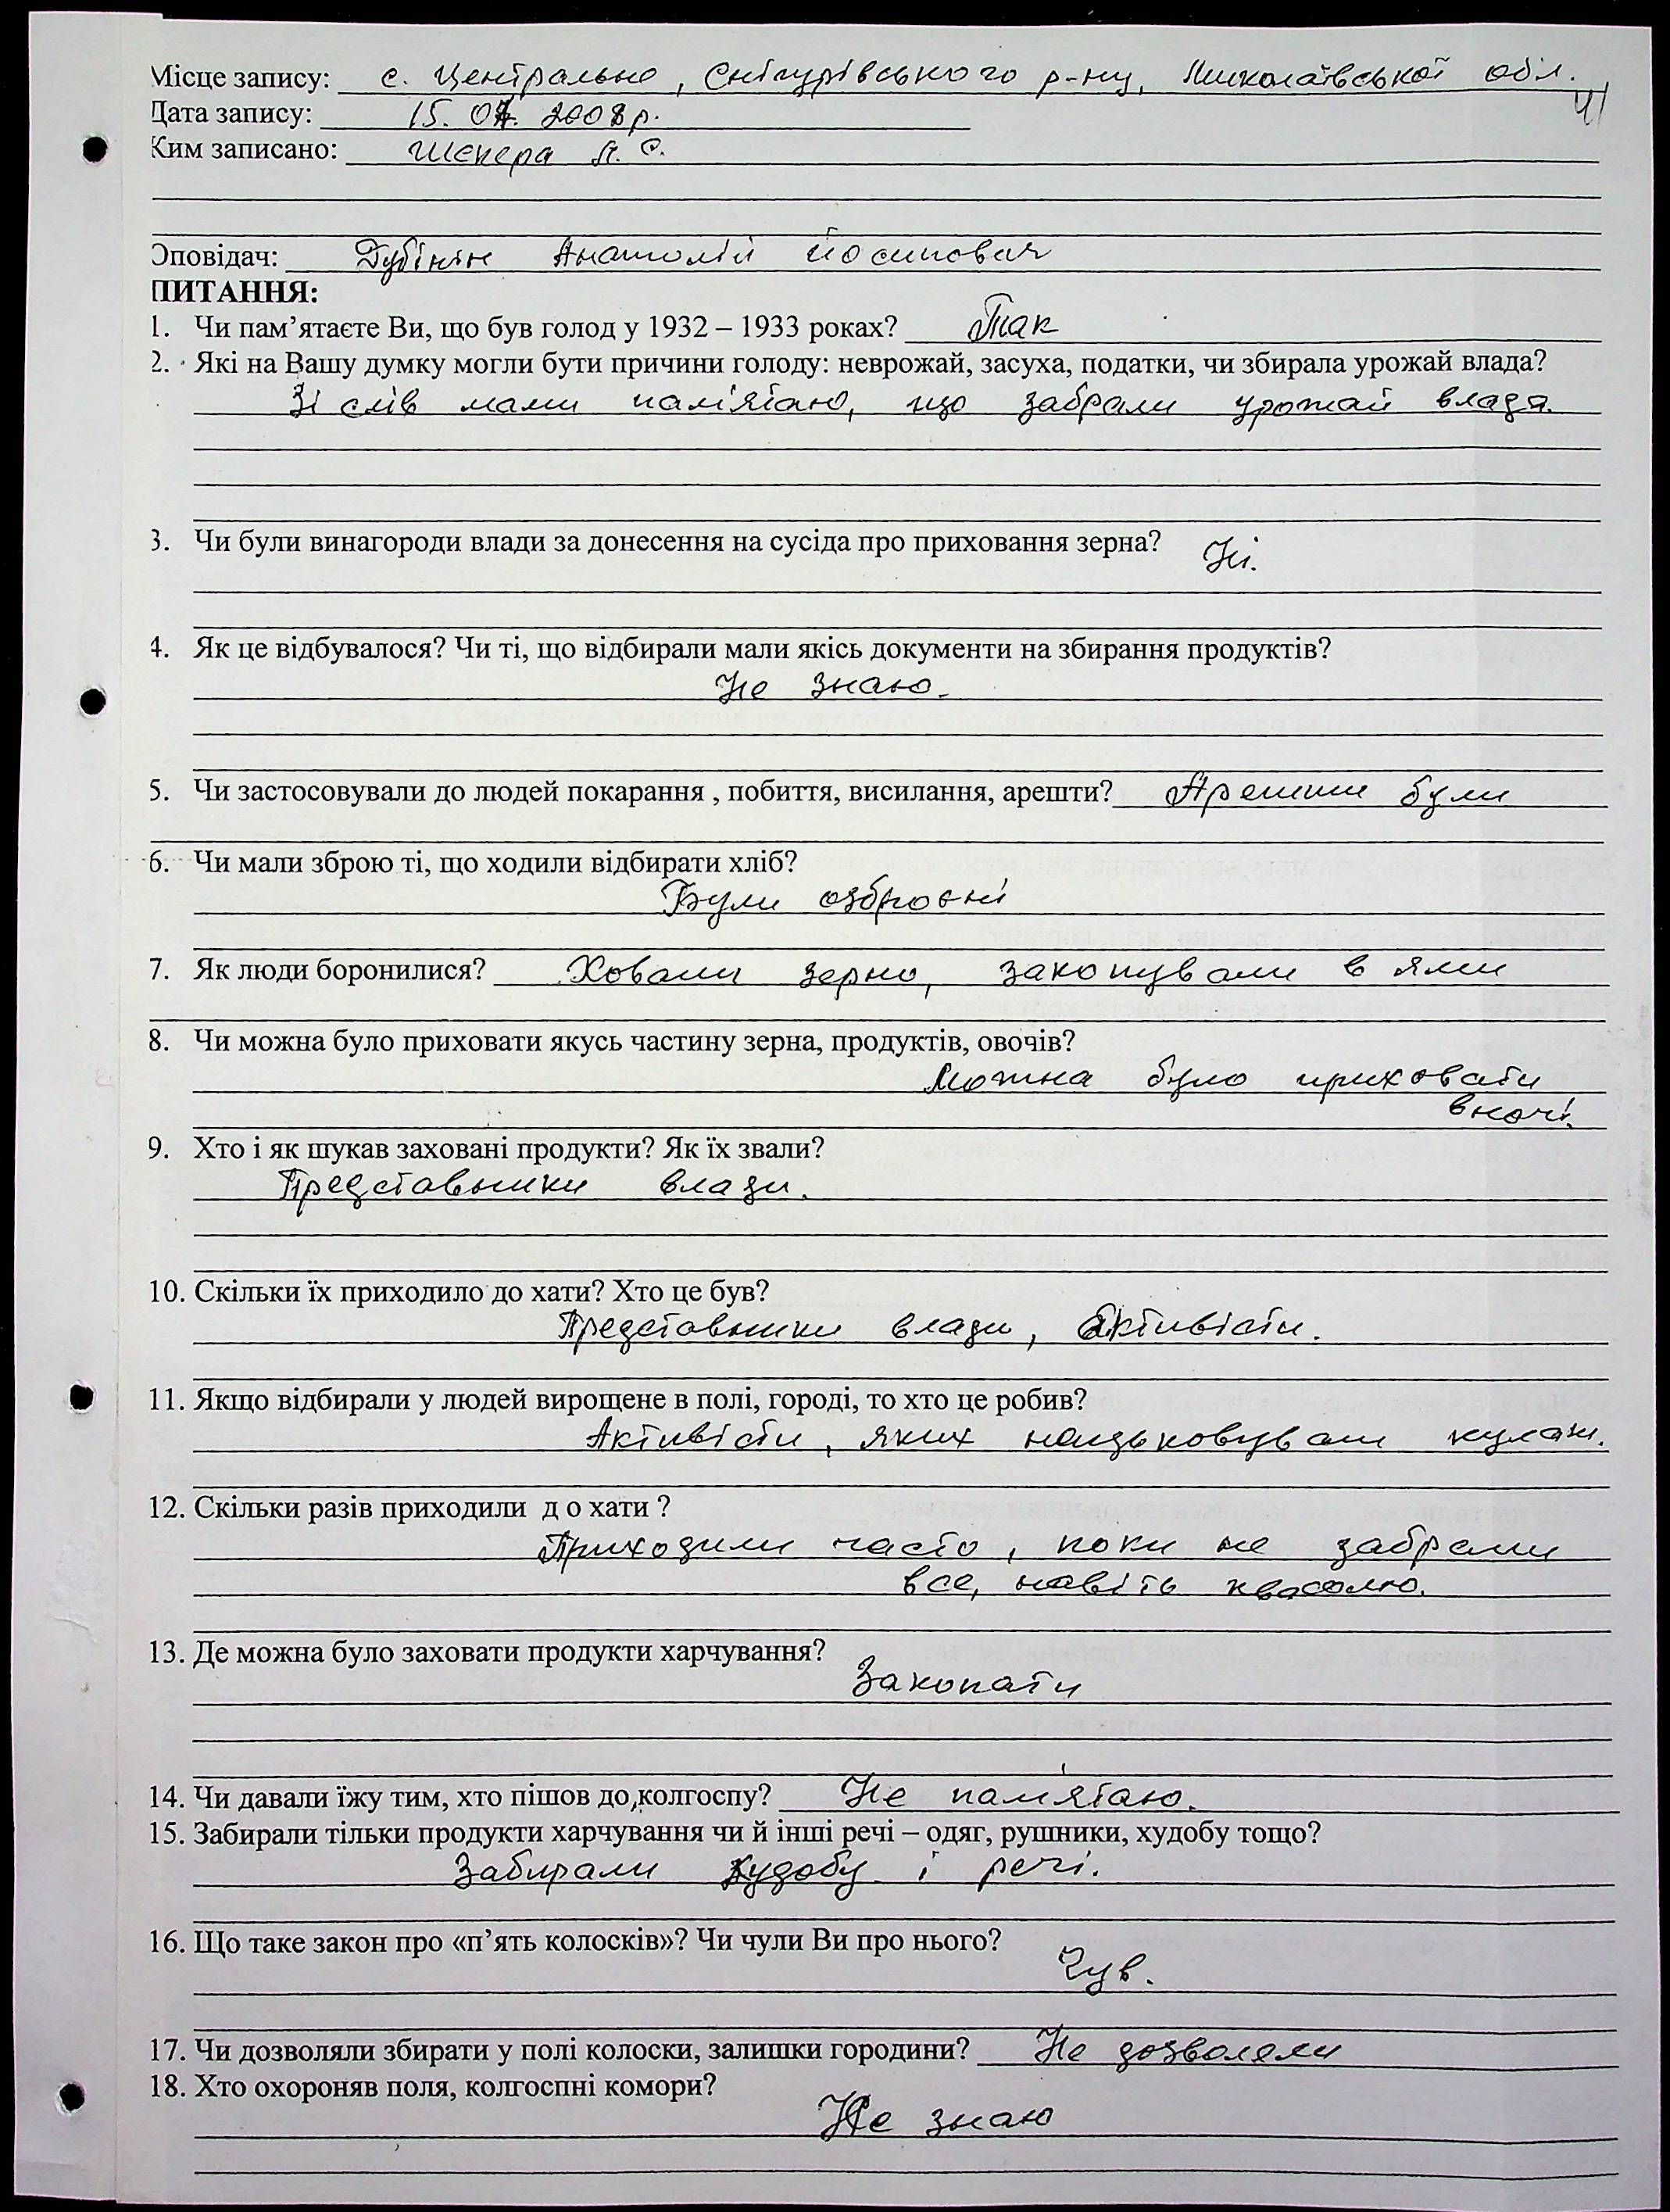 Місце запису: с. Центральне, Снігурівського р-ну, Миколаївської обл.
41
Дата запису: 15. 07. 2008 р.
Ким записано: Шекера А. С.
Оповідач: Дубінін Анатолій Йосипович
ПИТАННЯ:
1. Чи пам’ятаєте Ви, що був голод у 1932 – 1933 роках? Так
2. Які на Вашу думку могли бути причини голоду: неврожай, засуха, податки, чи збирала урожай влада?
Зі слів мами пам'ятаю, що забрали урожай влада.
3. Чи були винагороди влади за донесення на сусіда про приховання зерна? Ні.
4. Як це відбувалося? Чи ті, що відбирали мали якісь документи на збирання продуктів?
Не знаю.
5. Чи застосовували до людей покарання , побиття, висилання, арешти? Арешти були
6. Чи мали зброю ті, що ходили відбирати хліб?
Були озброєні
7. Як люди боронилися? Ховали зерно, закопували в ями
8. Чи можна було приховати якусь частину зерна, продуктів, овочів?
Можна було приховати
вночі.
9. Хто і як шукав заховані продукти? Як їх звали?
Представники влади.
10. Скільки їх приходило до хати? Хто це був?
Представники влади, активісти.
11. Якщо відбирали у людей вирощене в полі, городі, то хто це робив?
Активісти, яких нацьковували
12. Скільки разів приходили д о хати ?
Приходили часто, поки не забрали
все, навіть квасолю.
13. Де можна було заховати продукти харчування?
Закопати
14. Чи давали їжу тим, хто пішов до колгоспу? Не пам'ятаю.
15. Забирали тільки продукти харчування чи й інші речі – одяг, рушники, худобу тощо?
Забирали худобу і речі.
16. Що таке закон про «п’ять колосків»? Чи чули Ви про нього?
Чув.
17. Чи дозволяли збирати у полі колоски, залишки городини? Не дозволяли
18. Хто охороняв поля, колгоспні комори?
Не знаю